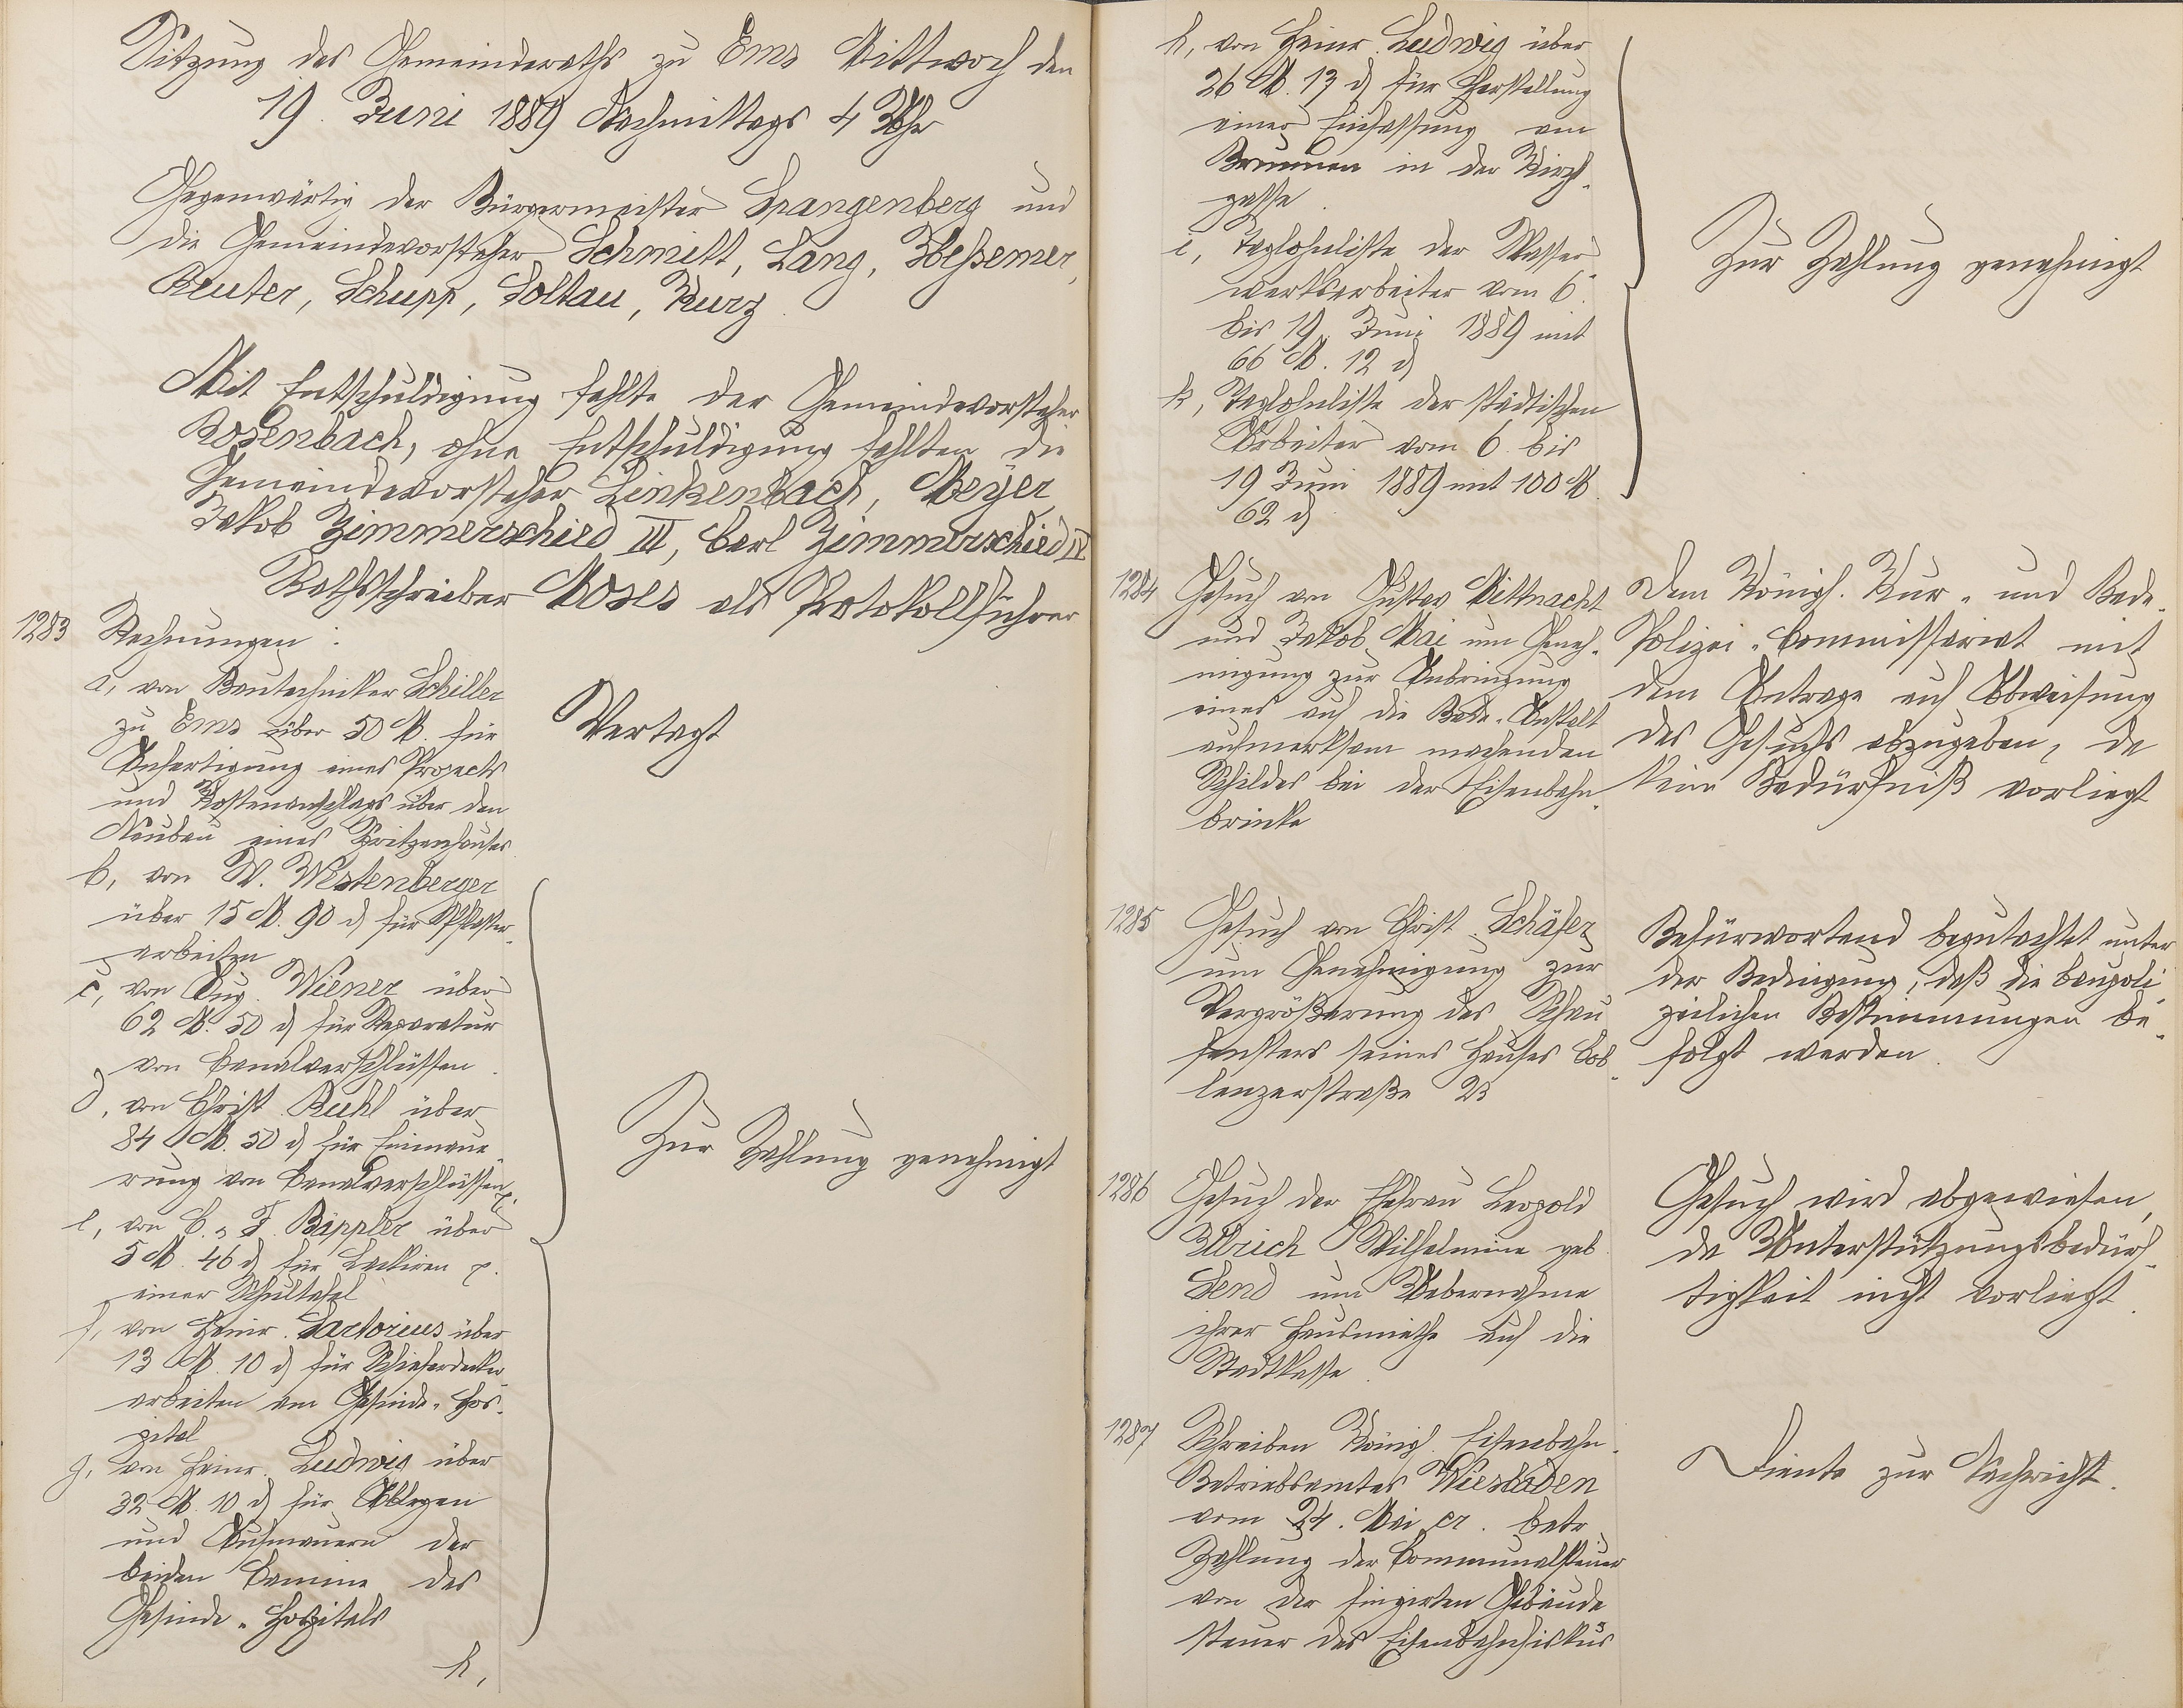 Sitzung des Gemeinderaths zu Ems Mittwoch den
19. Juni 1889 Nachmittags 4 Uhr
Gegenwärtig der Bürgermeister Spangenberg und
die Gemeindevorsteher Schmitt, Lang, Beßemer,
Reuter, Schupp, Soltau, Kurz.
Mit Entschuldigung fehlte der Gemeindevorsteher
Rosenbach, ohne Entschuldigung fehlten die
Gemeindevorsteher Linkenbach, Meyer
Jakob Zimmerschied III, Carl Zimmerschied IV
Rathsschreiber Moses als Protokollführer
1283 Rechnungen:
a, von Bautechniker Schiller
zu Ems über 50 M. für
Anfertigung eines Projects
und Kostenanschlags über den
Neubau eines Spritzenhauses
Vertagt
b, von W. Westenberger
über 15 M. 90 d für Pflaster-
arbeiten
c, von Aug. Wiener über
62 M. 50 d für Reparatur
von Canalverschlüssen.
d, von Christ. Ruhl über
84 M. 50 d für Einmaue-
rung von Canalverschlüssen p.
e, von C. & F. Bäppler über
5 M. 46 d für Lackiren p.
einer Schultafel
f, von Heinr. Sartorius über
13 M. 10 d für Schieferdecker-
arbeiten am Gesinde-Hos-
pital
g, von Heinr. Ludwig über
32 M. 10 d für Ablegen
und Aufmauern der
beiden Camine des
Gesinde-Hospitals
Zur Zahlung genehmigt
h,
h, von Heinr. Ludwig über
26 M. 17 d für Herstellung
einer Einfassung am
Brunnen in der Kirch-
gasse.
i, Taglohnliste der Wasser-
werksarbeiter vom 6.
bis 19. Juni 1889 mit
66 M. 12 d
k, Taglohnliste der städtischen
Arbeiter vom 6. bis
19 Juni 1889 mit 100 M.
62 d
Zur Zahlung genehmigt
1284 Gesuch von Gustav Mittnacht
und Jakob Mai um Geneh-
migung zur Anbringung
eines auf die Bade-Anstalt
aufmerksam machenden
Schildes bei der Eisenbahn-
brücke
Dem Königl. Kur- und Bade-
Polizei-Commissariat mit
dem Antrage auf Abweisung
des Gesuchs abzugeben, da
kein Bedürfniß vorliegt
1285 Gesuch von Christ. Schäfer
um Genehmigung zur
Vergrößerung des Schau
fensters seines Hauses Cob-
lenzerstraße 23
Befürwortend begutachtet unter
der Bedingung, daß die baupoli-
zeilichen Bestimmungen be-
folgt werden.
1286 Gesuch der Ehefrau Leopold
Ulrich Wilhelmine geb.
Send um Uebernahme
ihrer Hausmiethe auf die
Stadtkasse.
Gesuch wird abgewiesen,
da Unterstützungsbedürf-
tigkeit nicht vorliegt.
1287 Schreiben Königl. Eisenbahn-
Betriebsamtes Wiesbaden
vom 24. Mai cr. betr.
Zahlung der Communalsteuer
von der fingirten Gebäude
steuer des Eisenbahnfiskus
Diente zur Nachricht.